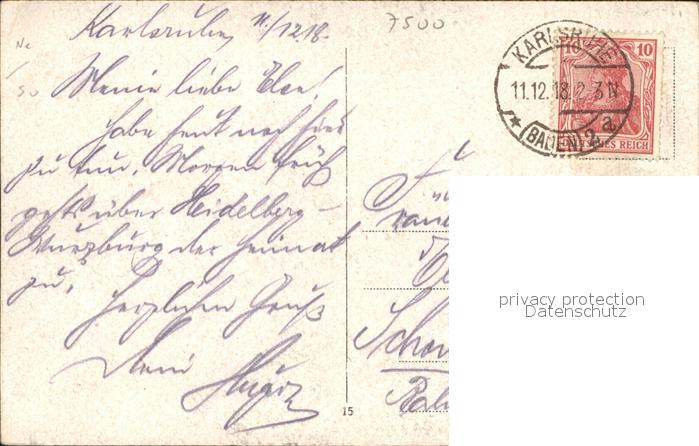 Karlsruhe, 11/12.18.
7500
Meine liebe Else!
habe heut noch hier
zu tun. Morgen früh
gehts über Heidelberg –
Würzburg der Heimat
zu.
Herzlichen Gruß
Dein
KARLSRUHE
11.12.18. 2-3 N
* (BADEN) 2 a
10
DEUTSCHES REICH
Fräu
15
privacy protection
Datenschutz